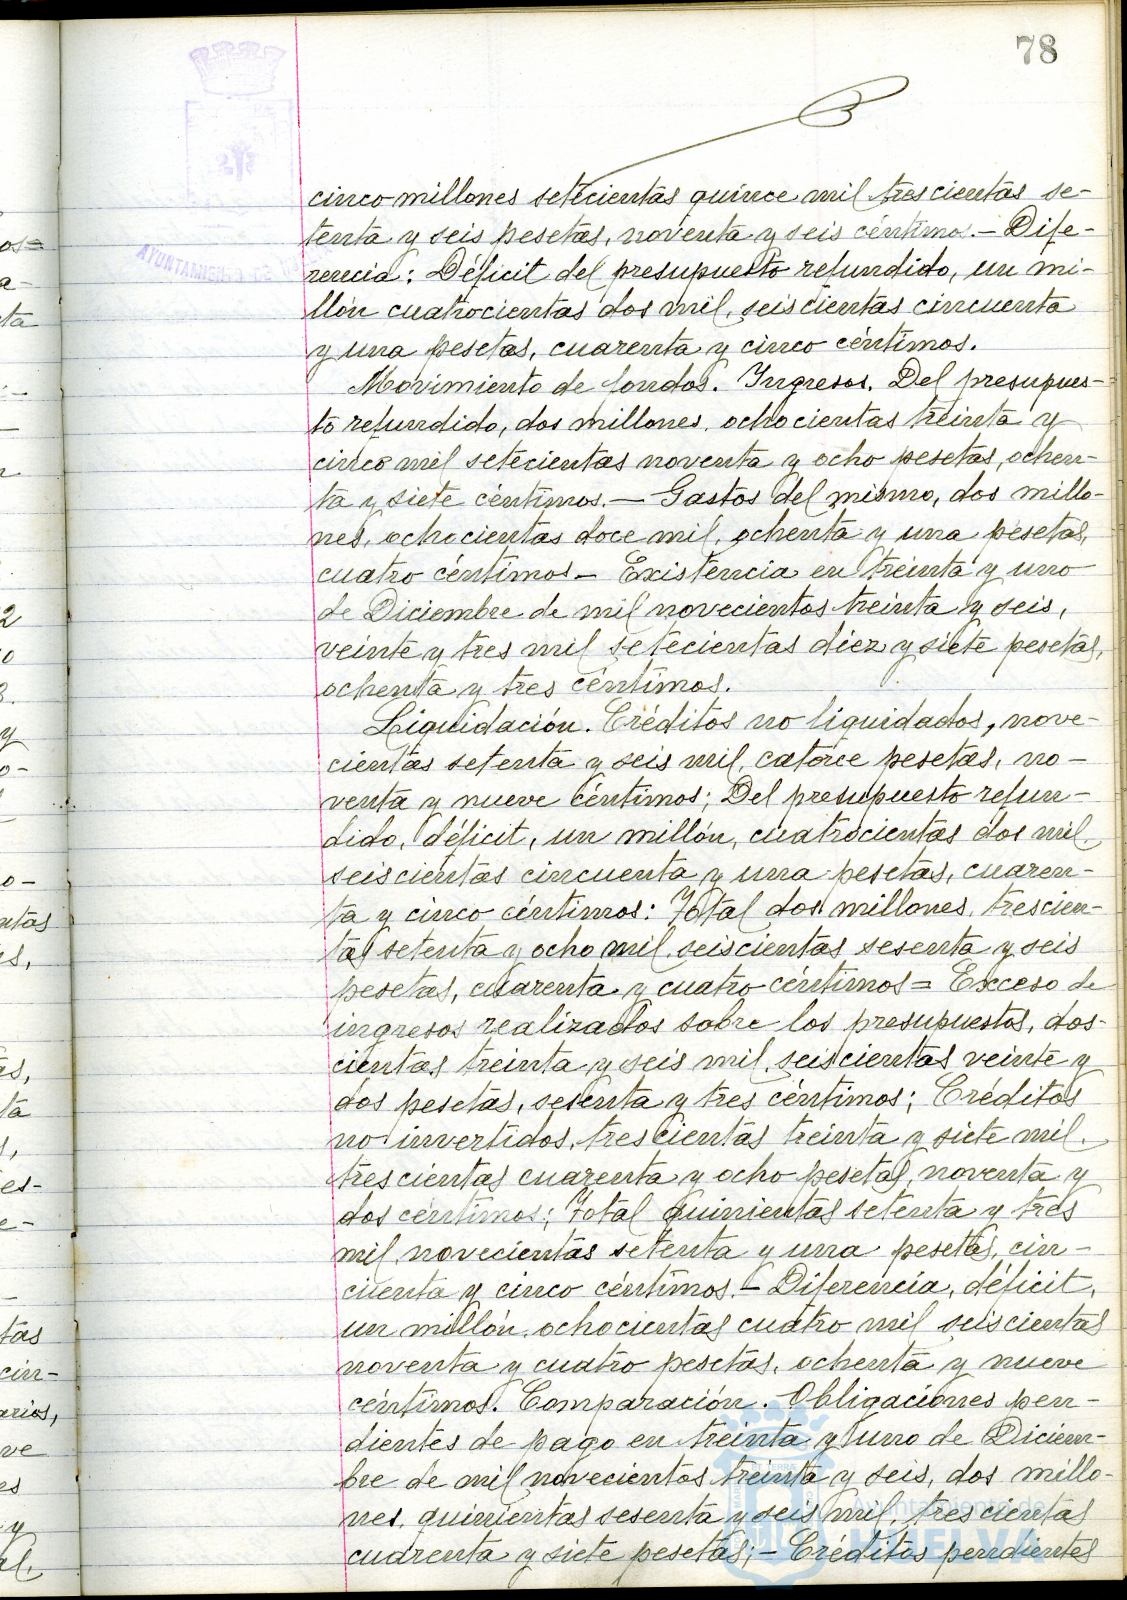 78
AYUNTAMIENTO DE
cinco millones setecientas quince mil trescientas se-
tenta y seis pesetas, noventa y seis céntimos.- Dife-
rencia: Déficit del presupuesto refundido, un mi-
llón cuatrocientas dos mil, seiscientas cincuenta
y una pesetas, cuarenta y cinco céntimos.
Movimiento de fondos. Ingresos. Del presupues-
to refundido, dos millones, ochocientas treinta y
cinco mil setecientas noventa y ocho pesetas, ochen-
ta y siete céntimos.- Gastos del mismo, dos millo-
nes, ochocientas doce mil, ochenta y una pesetas,
cuatro céntimos- Existencia en treinta y uno
de Diciembre de mil novecientos treinta y seis,
veinte y tres mil setecientas diez y siete pesetas,
ochenta y tres céntimos.
Liquidación. Créditos no liquidados, nove-
cientas setenta y seis mil, catorce pesetas, no-
venta y nueve céntimos; Del presupuesto refun-
dido, déficit, un millón, cuatrocientas dos mil,
seiscientas cincuenta y una pesetas, cuaren-
ta y cinco céntimos: Total dos millones, trescien-
tas setenta y ocho mil, seiscientas sesenta y seis
pesetas, cuarenta y cuatro céntimos= Exceso de
ingresos realizados sobre los presupuestos, dos-
cientas treinta y seis mil, seiscientas veinte y
dos pesetas, sesenta y tres céntimos; Créditos
no invertidos, trescientas treinta y siete mil,
trescientas cuarenta y ocho pesetas, noventa y
dos céntimos; Total quinientas setenta y tres
mil, novecientas setenta y una pesetas, cin-
cuenta y cinco céntimos.- Diferencia, déficit,
un millón, ochocientas cuatro mil seiscientas
noventa y cuatro pesetas, ochenta y nueve
céntimos. Comparación. Obligaciones pen-
dientes de pago en treinta y uno de Diciem-
bre de mil novecientos treinta y seis, dos millo-
nes, quinientas sesenta y seis mil, trescientas
cuarenta y siete pesetas;- Créditos pendientes
Ayuntamiento de
HUELVA